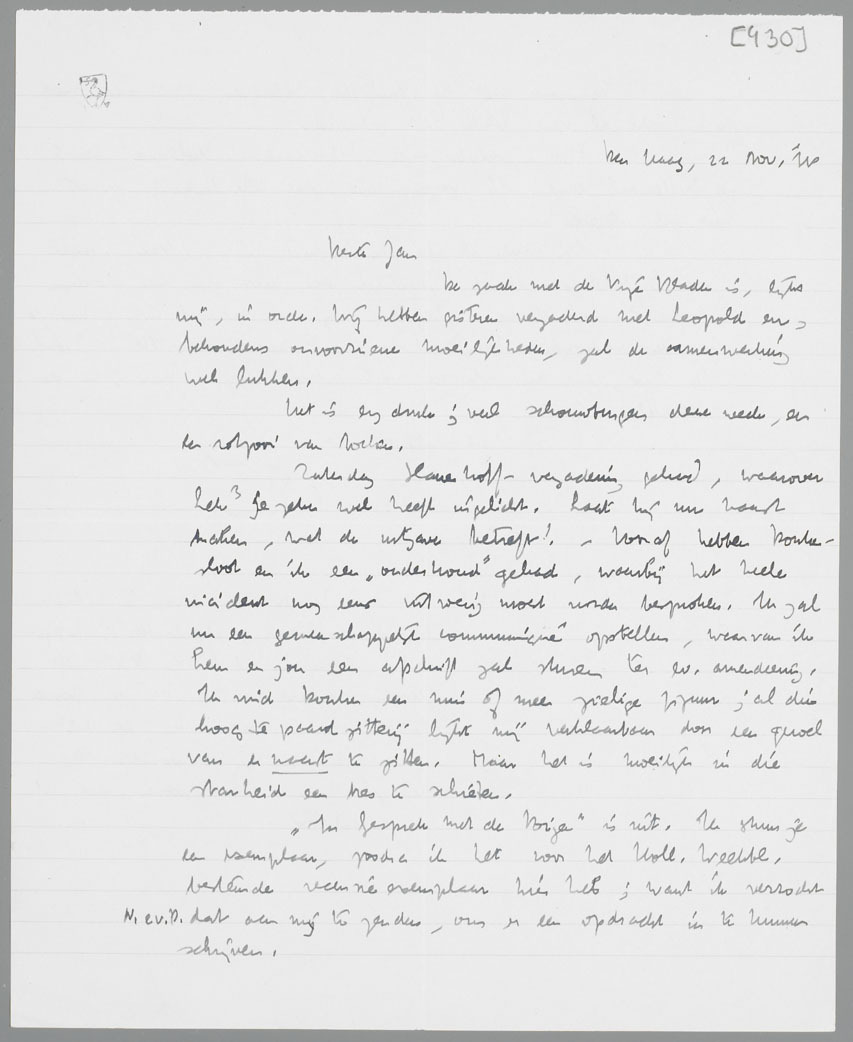 [430]
Den Haag, 22 Nov.
Beste Jan
De zaak met de Vrije Bladen is, lijkt
mij, in orde. Wij hebben gisteren vergaderd met Leopold en,
behoudens onvoorziene moeilijkheden, zal de samenwerking
wel lukken.
Het is erg druk; veel schouwburgen deze week, en
een rotzooi van boeken.
Zaterdag Slauerhoff-vergadering gehad, waarover
je zeker wel heeft ingelicht. Laat hij nu haast
maken, wat de uitgave betreft! - Vooraf hebben
en ik een „onderhoud" gehad, waarbij het heele
incident nog eens moest worden besproken. Ik zal
nu een gemeenschappelijk communiqué opstellen, waarvan ik
hem en jou een afschrift zal sturen ter ev. amendeering.
Ik vind een min of meer zielige figuur; al die
hoog te paard zitterij lijkt mij verklaarbaar door een gevoel
van er naast te zitten. Maar het is moeilijk in die
starheid een bres te schieten.
„In Gesprek met de Vorigen" is uit. Ik stuur je
een exemplaar, zoodra ik het voor het Holl. Weekbl.
bestemde recensie exemplaar hier heb; want ik verzocht
N. e.v.D. dat aan mij te zenden, om er een opdracht in te kunnen
schrijven.